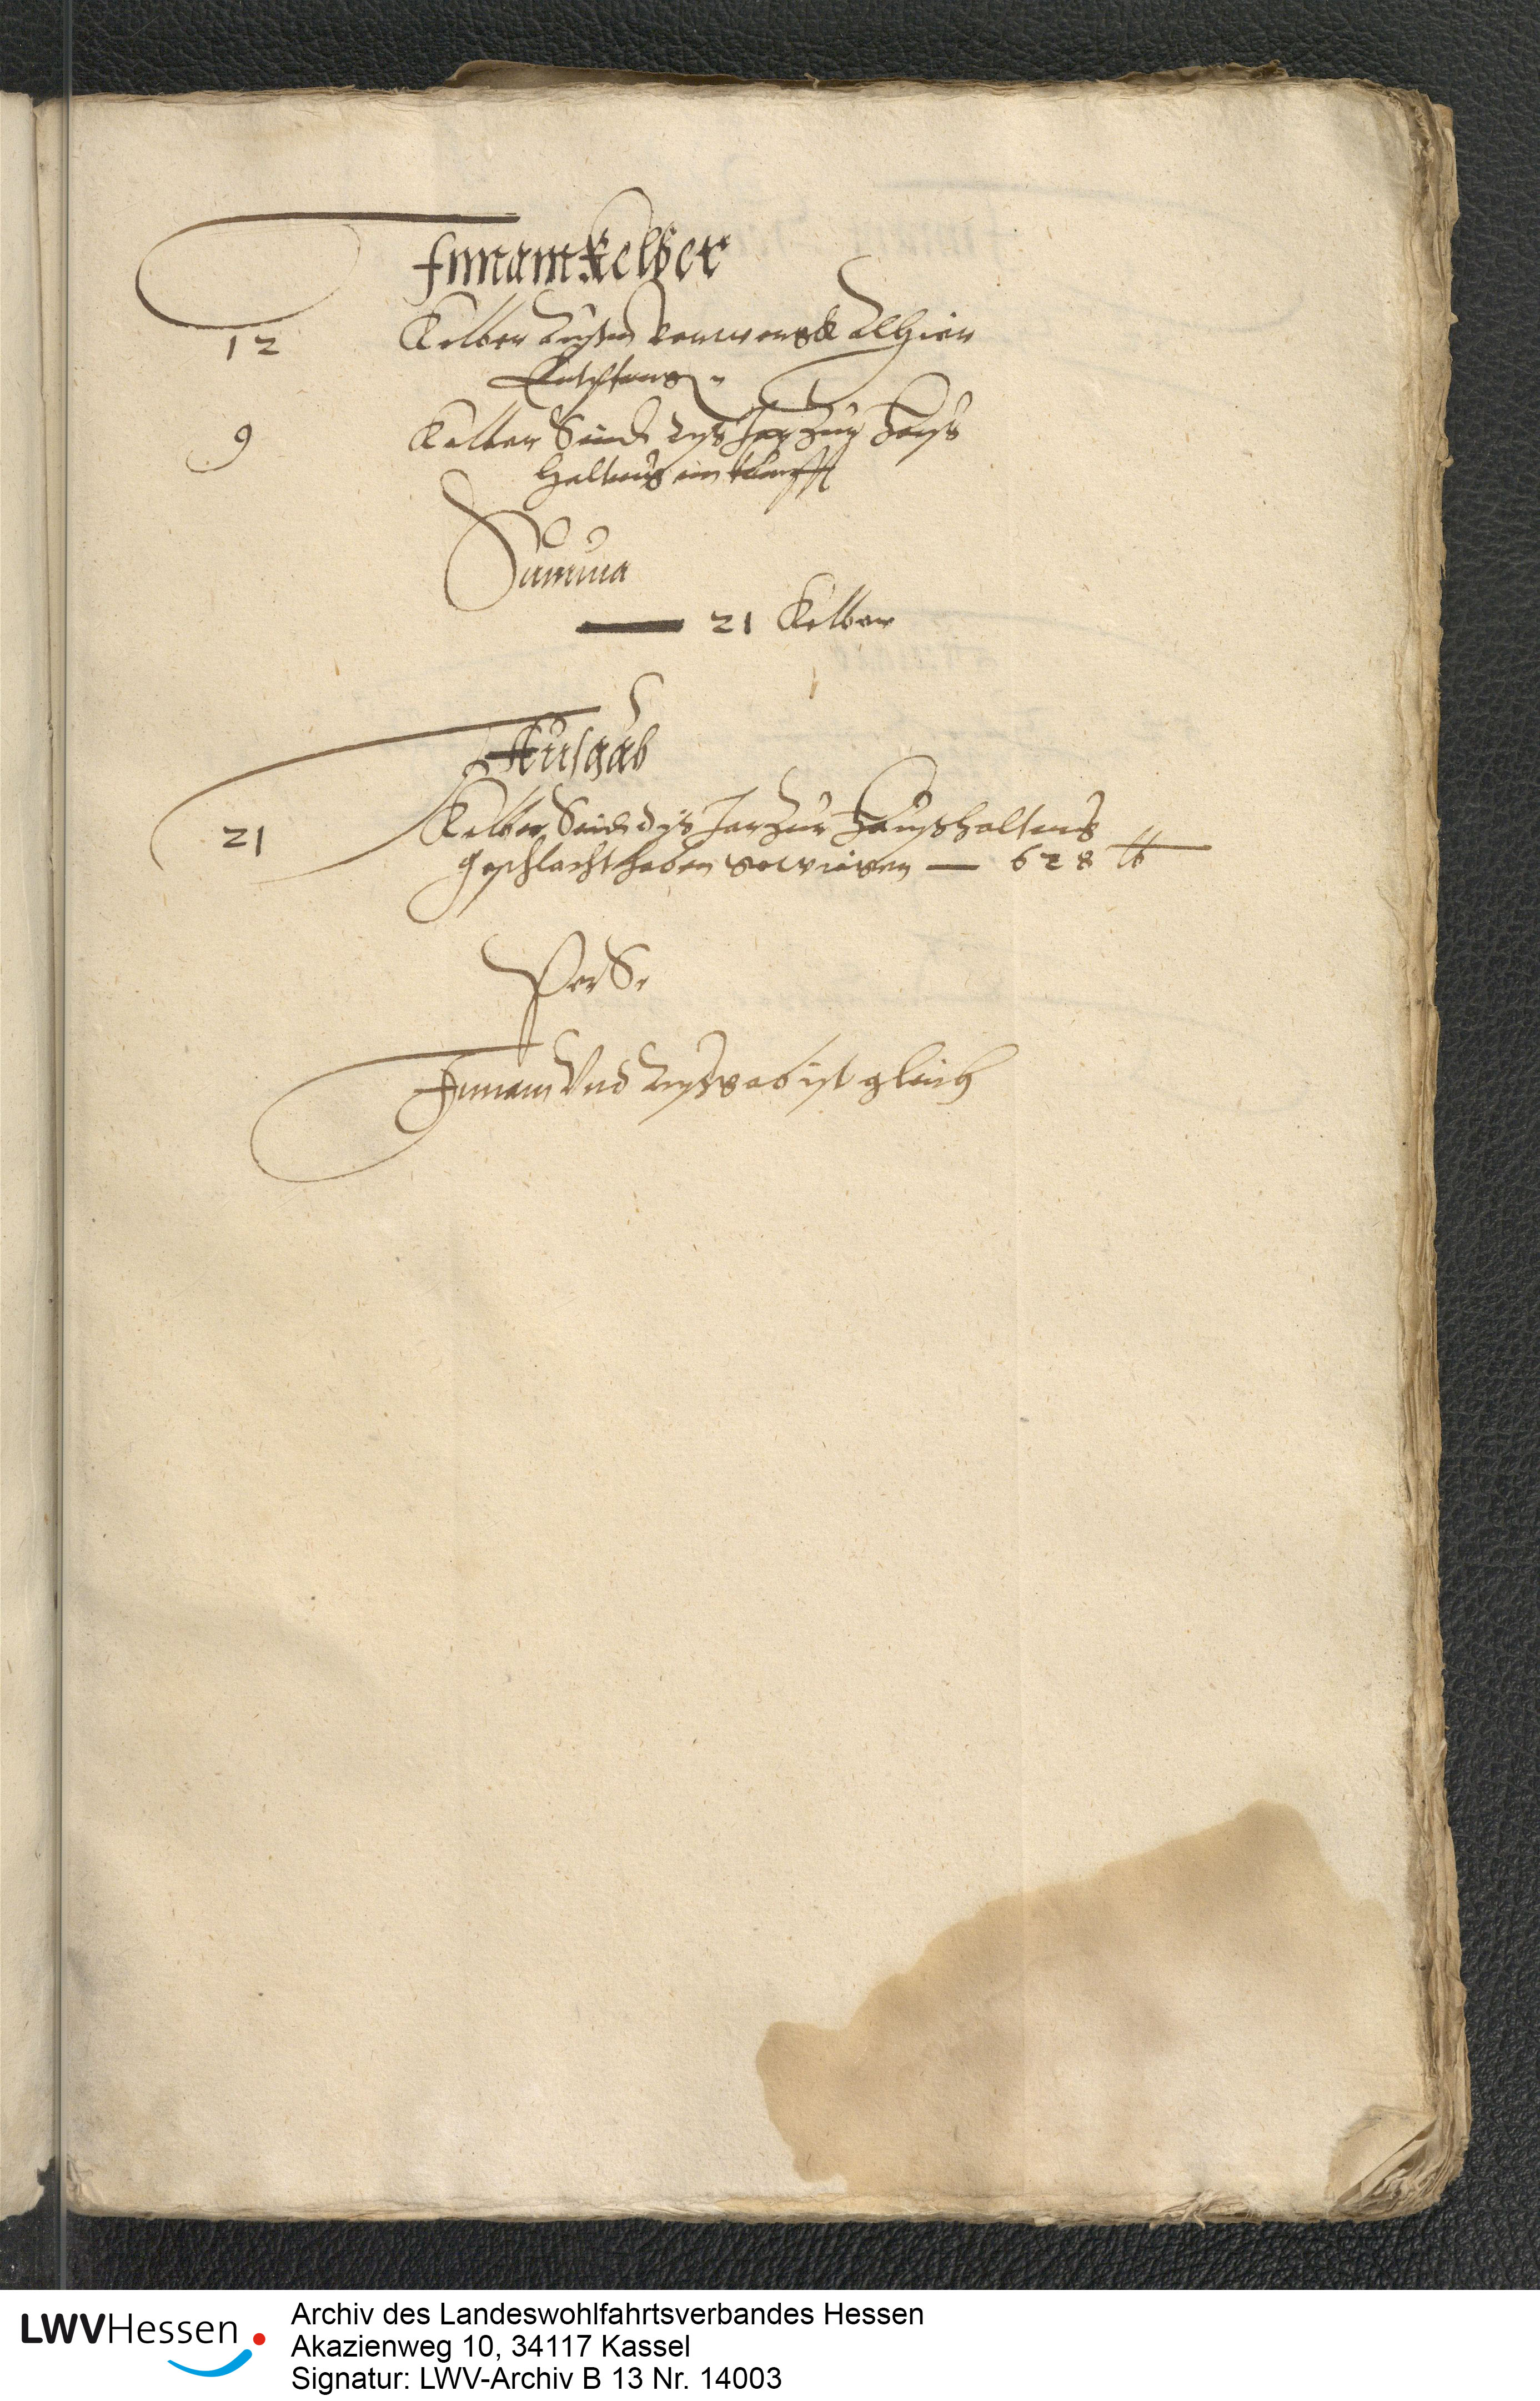 Innam Kelber
12 Kelber Aussm Vorwergk Alhier
Entpfang
9 Kelber Seind dis Jar zur Hauß
haltung ein kaufft
Summa
21 Kelber
Ausgab
21 Kelber Seind dis Jar zur Haußhaltung
geschlacht haben gewiegen — 628 lb
Per Se
Innam Vnd Außgab ist gleich
LWVHessen
Archiv des Landeswohlfahrtsverbandes Hessen
Akazienweg 10, 34117 Kassel
Signatur: LWV-Archiv B 13 Nr. 14003